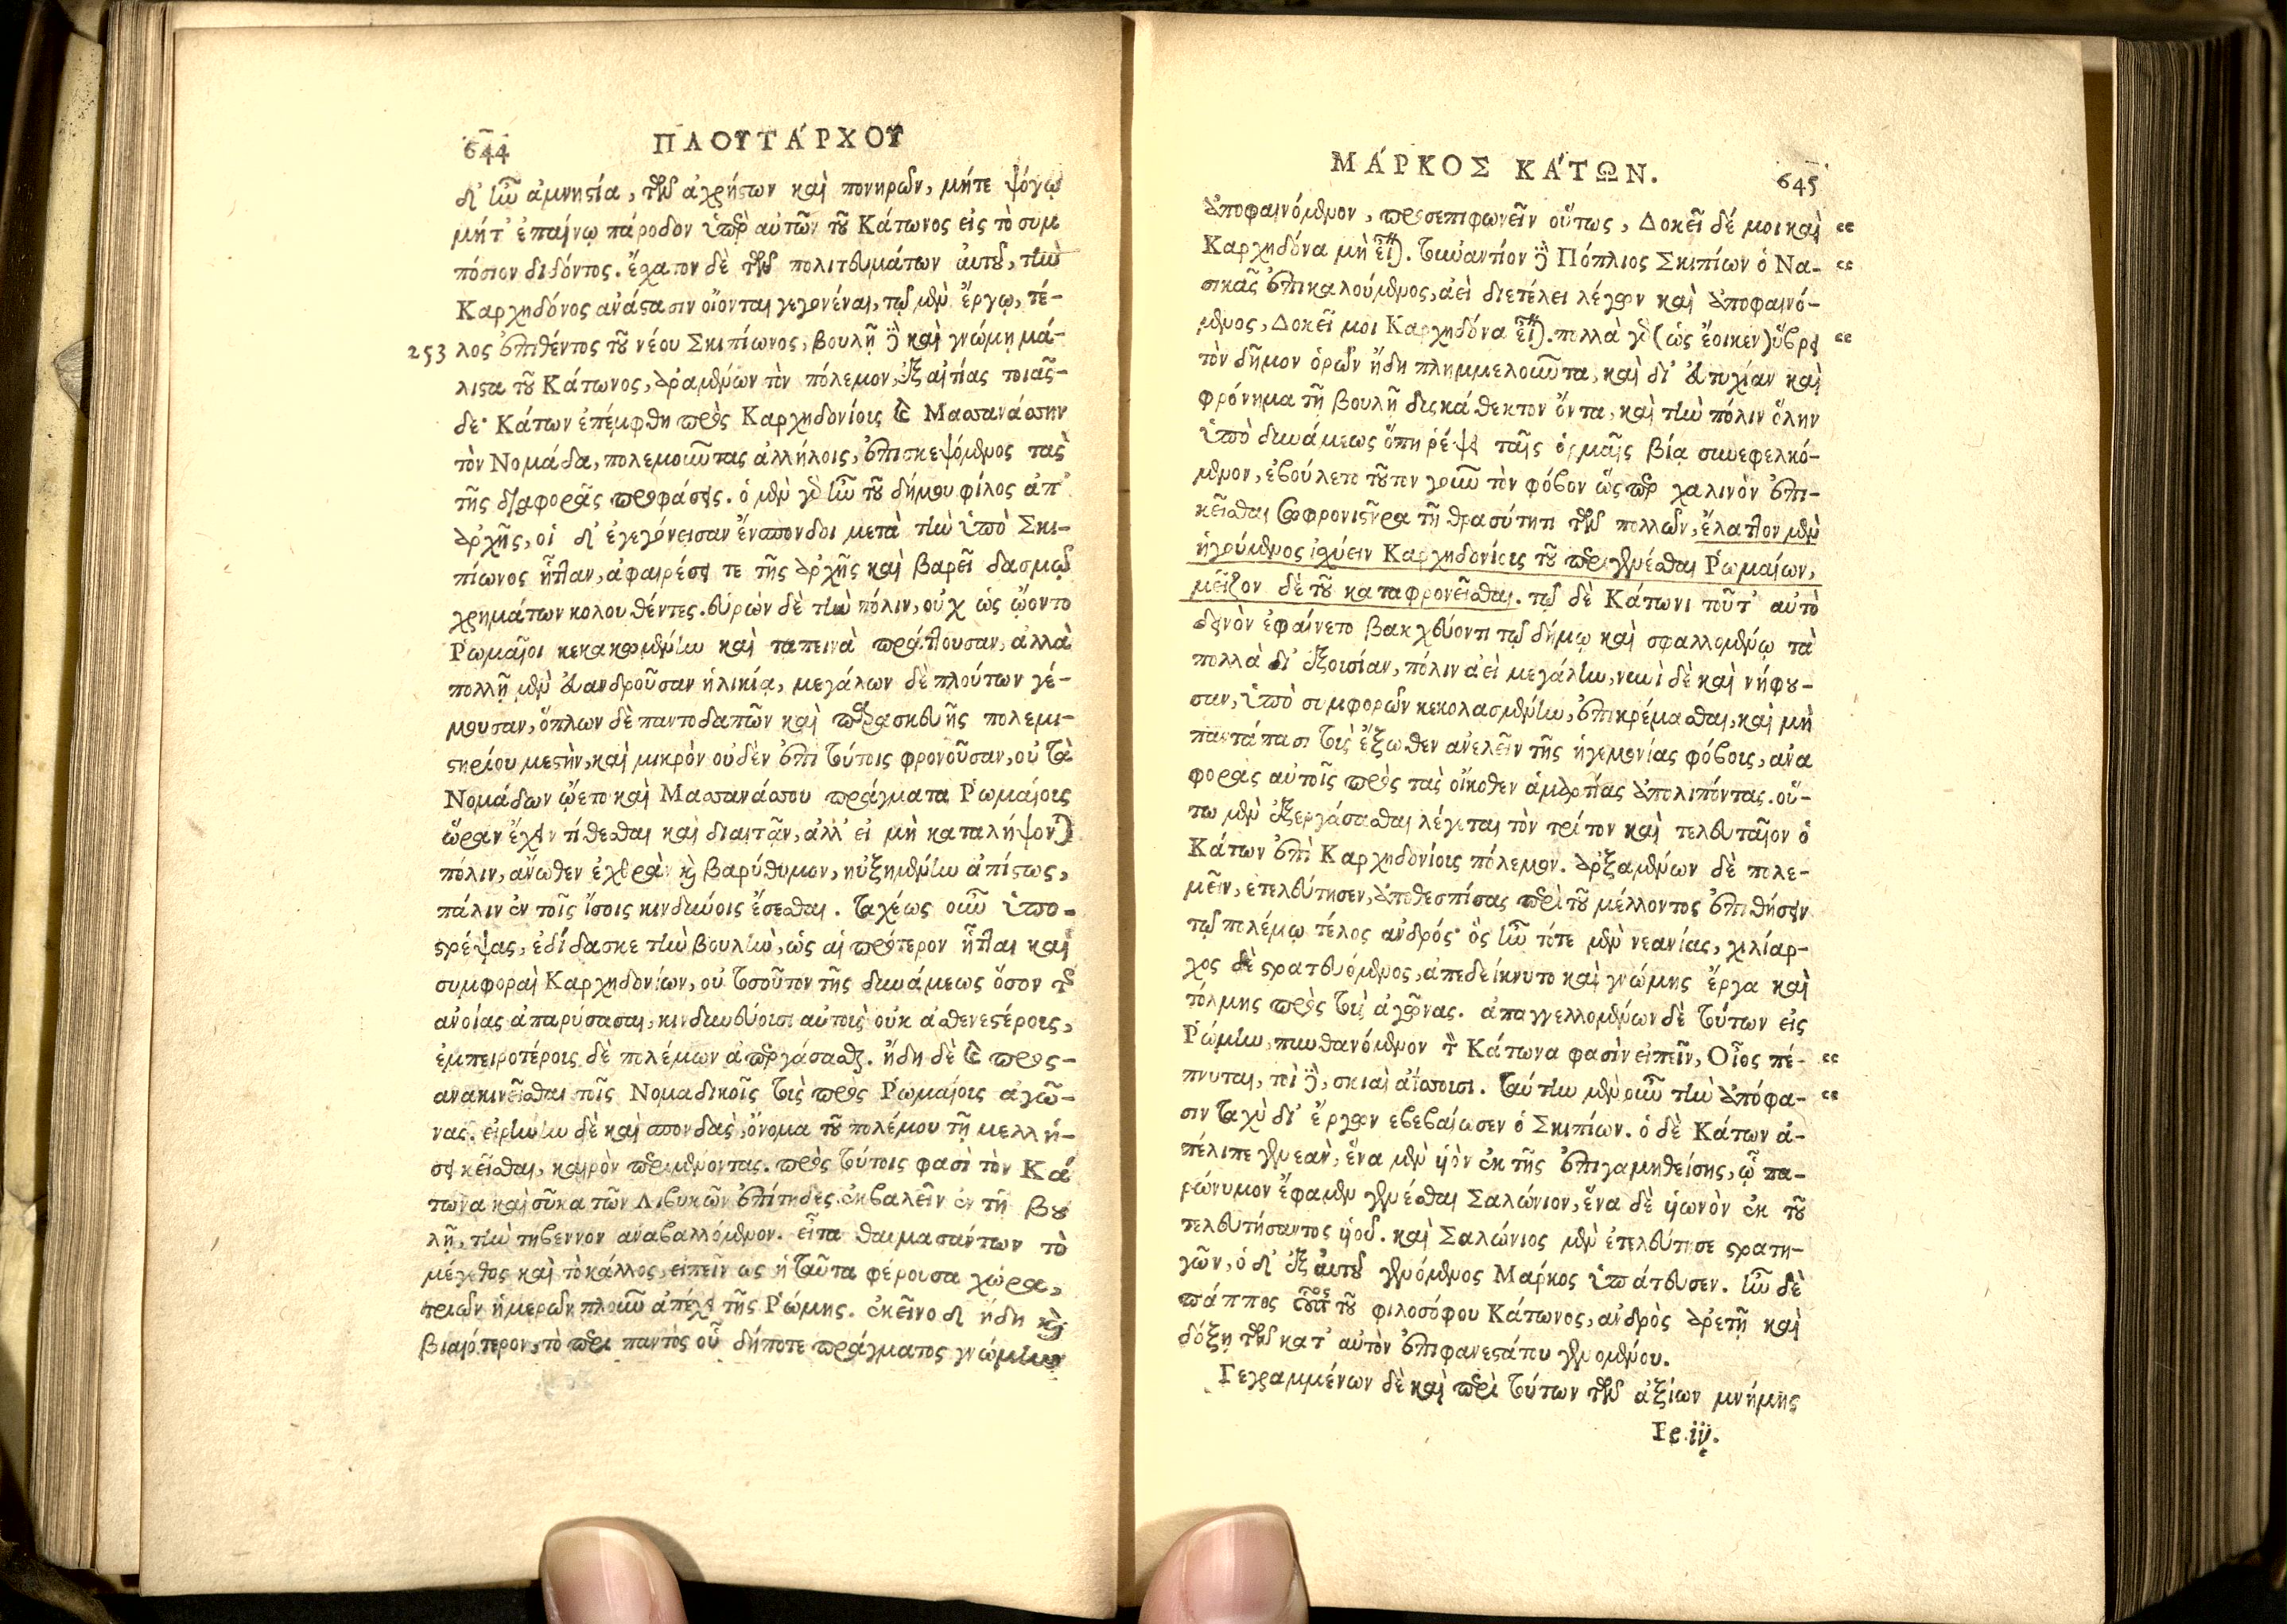 644
ΠΛΟΥΤΆΡΧΟΥ
δ' ἦν ἀμνηστία, τῶν ἀχρήστων καὶ πονηρῶν, μήτε ψόγῳ
μήτ' ἐπαίνῳ πάροδον ὑπὲρ αὐτῶν τοῦ Κάτωνος εἰς τὸ συμ
πόσιον διδόντος. ἔσχατον δὲ τῶν πολιτευμάτων αὐτοῦ, τὴν
Καρχηδόνος ἀνάστασιν οἴονται γεγονέναι, τῷ μὲν ἔργῳ, τέ-
253 λος ἐπιθέντος τοῦ νέου Σκιπίωνος, βουλῇ δὲ καὶ γνώμῃ μά-
λιστα τοῦ Κάτωνος, ἀραμένων τὸν πόλεμον, ἐξ αἰτίας τοιᾶς-
δε· Κάτων ἐπέμφθη πρὸς Καρχηδονίοις καὶ Μασσανάσσην
τὸν Νομάδα, πολεμοῦντας ἀλλήλοις, ἐπισκεψόμενος τὰς
τῆς διαφορᾶς προφάσεις. ὁ μὲν γὰρ ἦν τοῦ δήμου φίλος ἀπ'
ἀρχῆς, οἱ δ' ἐγεγόνεισαν ἔνσπονδοι μετὰ τὴν ὑπὸ Σκι-
πίωνος ἧτταν, ἀφαιρέσει τε τῆς ἀρχῆς καὶ βαρεῖ δασμῷ
χρημάτων κολουθέντες. εὑρὼν δὲ τὴν πόλιν, οὐχ ὡς ᾤοντο
Ῥωμαῖοι κεκακωμένην καὶ ταπεινὰ πράττουσαν, ἀλλὰ
πολλῇ μὲν εὐανδροῦσαν ἡλικίᾳ, μεγάλων δὲ πλούτων γέ-
μουσαν, ὅπλων δὲ παντοδαπῶν καὶ παρασκευῆς πολεμι-
στηρίου μεστὴν, καὶ μικρὸν οὐδὲν ἐπὶ τύτοις φρονοῦσαν, οὐ τὰ
Νομάδων ᾤετο καὶ Μασσανάσσου πράγματα Ῥωμαίοις
ὥραν ἔχειν τίθεσθαι καὶ διαιτᾶν, ἀλλ' εἰ μὴ καταλήψονται
πόλιν, ἄνωθεν ἐχθρὰν καὶ βαρύθυμον, ηὐξημένην ἀπίστως,
πάλιν ἐν τοῖς ἴσοις κινδύνοις ἔσεσθαι. ταχέως οὖν ὑπο-
στρέψας, ἐδίδασκε τὴν βουλὴν, ὡς αἱ πρότερον ἧτται καὶ
συμφοραὶ Καρχηδονίων, οὐ τοσοῦτον τῆς δυνάμεως ὅσον τῆς
ἀνοίας ἀπαρύσασαι, κινδυνεύουσι αὐτοὺς οὐκ ἀσθενεστέροις,
ἐμπειροτέροις δὲ πολέμων ἀπεργάσασθαι. ἤδη δὲ καὶ προς-
ανακινεῖσθαι τοῖς Νομαδικοῖς τοὺς πρὸς Ῥωμαίοις ἀγῶ-
νας. εἰρήνην δὲ καὶ σπονδὰς, ὄνομα τοῦ πολέμου τῇ μελλή-
σει κεῖσθαι, καιρὸν περιμένοντας. πρὸς τούτοις φασὶ τὸν Κά
τωνα καὶ σῦκα τῶν Λιβυκῶν ἐπίτηδες ἐκβαλεῖν ἐν τῇ βου
λῇ, τὴν τήβεννον ἀναβαλλόμενον. εἶτα θαυμασάντων τὸ
μέγεθος καὶ τὸ κάλλος, εἰπεῖν ὡς ἡ ταῦτα φέρουσα χώρα,
τριῶν ἡμερῶν πλοῦν ἀπέχει τῆς Ῥώμης. ἐκεῖνο δ' ἤδη καὶ
βιαιότερον, τὸ περὶ παντὸς οὗ δήποτε πράγματος γνώμην
ΜΆΡΚΟΣ ΚΆΤΩΝ.
645
ἀποφαινόμενον, προσεπιφωνεῖν οὕτως, Δοκεῖ δέ μοι καὶ
Καρχηδόνα μὴ εἶναι. τοὐναντίον δὲ Πόπλιος Σκιπίων ὁ Να-
σικᾶς ἐπικαλούμενος, ἀεὶ διετέλει λέγων καὶ ἀποφαινό-
μενος, Δοκεῖ μοι Καρχηδόνα εἶναι. πολλὰ γὰρ (ὡς ἔοικεν) ὕβρει
τὸν δῆμον ὁρῶν ἤδη πλημμελοῦντα, καὶ δι' εὐτυχίαν καὶ
φρόνημα τῇ βουλῇ δυσκάθεκτον ὄντα, καὶ τὴν πόλιν ὅλην
ὑπὸ δυνάμεως ὅπη ῥέψει ταῖς ὁρμαῖς βίᾳ συνεφελκό-
μενον, ἐβούλετο τοῦτον γοῦν τὸν φόβον ὥσπερ χαλινὸν ἐπι-
κεῖσθαι σωφρονιστῆρα τῇ θρασύτητι τῶν πολλῶν, ἔλαττον μὲν
ἡγούμενος ἰσχύειν Καρχηδονίοις τοῦ περιγενέσθαι Ῥωμαίων,
μεῖζον δὲ τοῦ καταφρονεῖσθαι. τῷ δὲ Κάτωνι τοῦτ' αὐτὸ
δεινὸν ἐφαίνετο βακχεύοντι τῷ δήμῳ καὶ σφαλλομένῳ τὰ
πολλὰ δι' ἐξουσίαν, πόλιν ἀεὶ μεγάλην, νυνὶ δὲ καὶ νήφου-
σαν, ὑπὸ συμφορῶν κεκολασμένην, ἐπικρέμασθαι, καὶ μὴ
παντάπασι τοὺς ἔξωθεν ἀνελεῖν τῆς ἡγεμονίας φόβοις, ἀνα
φορὰς αὐτοῖς πρὸς τὰς οἴκοθεν ἁμαρτίας ἀπολιπόντας. οὕ-
τω μὲν ἐξεργάσασθαι λέγεται τὸν τρίτον καὶ τελευταῖον ὁ
Κάτων ἐπὶ Καρχηδονίοις πόλεμον. ἀρξαμένων δὲ πολε-
μεῖν, ἐτελεύτησεν, ἀποθεσπίσας περὶ τοῦ μέλλοντος ἐπιθήσειν
τῷ πολέμῳ τέλος ἀνδρός· ὃς ἦν τότε μὲν νεανίας, χιλίαρ-
χος δὲ στρατευόμενος, ἀπεδείκνυτο καὶ γνώμης ἔργα καὶ
τόλμης πρὸς τοὺς ἀγῶνας. ἀπαγγελλομένων δὲ τούτων εἰς
Ῥώμην, πυνθανόμενον τὸν Κάτωνα φασὶν εἰπεῖν, Οἷος πέ-
πνυται, τοὶ δὲ, σκιαὶ ἀΐσσουσι. ταύτην μὲν οὖν τὴν ἀπόφα-
σιν ταχὺ δι' ἔργων ἐβεβαίωσεν ὁ Σκιπίων. ὁ δὲ Κάτων ἀ-
πέλιπε γενεὰν, ἕνα μὲν υἱὸν ἐκ τῆς ἐπιγαμηθείσης, ᾧ πα-
ρώνυμον ἔφαμεν γενέσθαι Σαλώνιον, ἕνα δὲ υἱωνὸν ἐκ τοῦ
τελευτήσαντος υἱοῦ. καὶ Σαλώνιος μὲν ἐτελεύτησε στρατη-
γῶν, ὁ δ' ἐξ αὐτοῦ γενόμενος Μάρκος ὑπάτευσεν. ἦν δὲ
πάππος οὗτος τοῦ φιλοσόφου Κάτωνος, ἀνδρὸς ἀρετῇ καὶ
δόξῃ τῶν κατ' αὐτὸν ἐπιφανεστάτου γενομένου.
Γεγραμμένων δὲ καὶ περὶ τούτων τῶν ἀξίων μνήμης